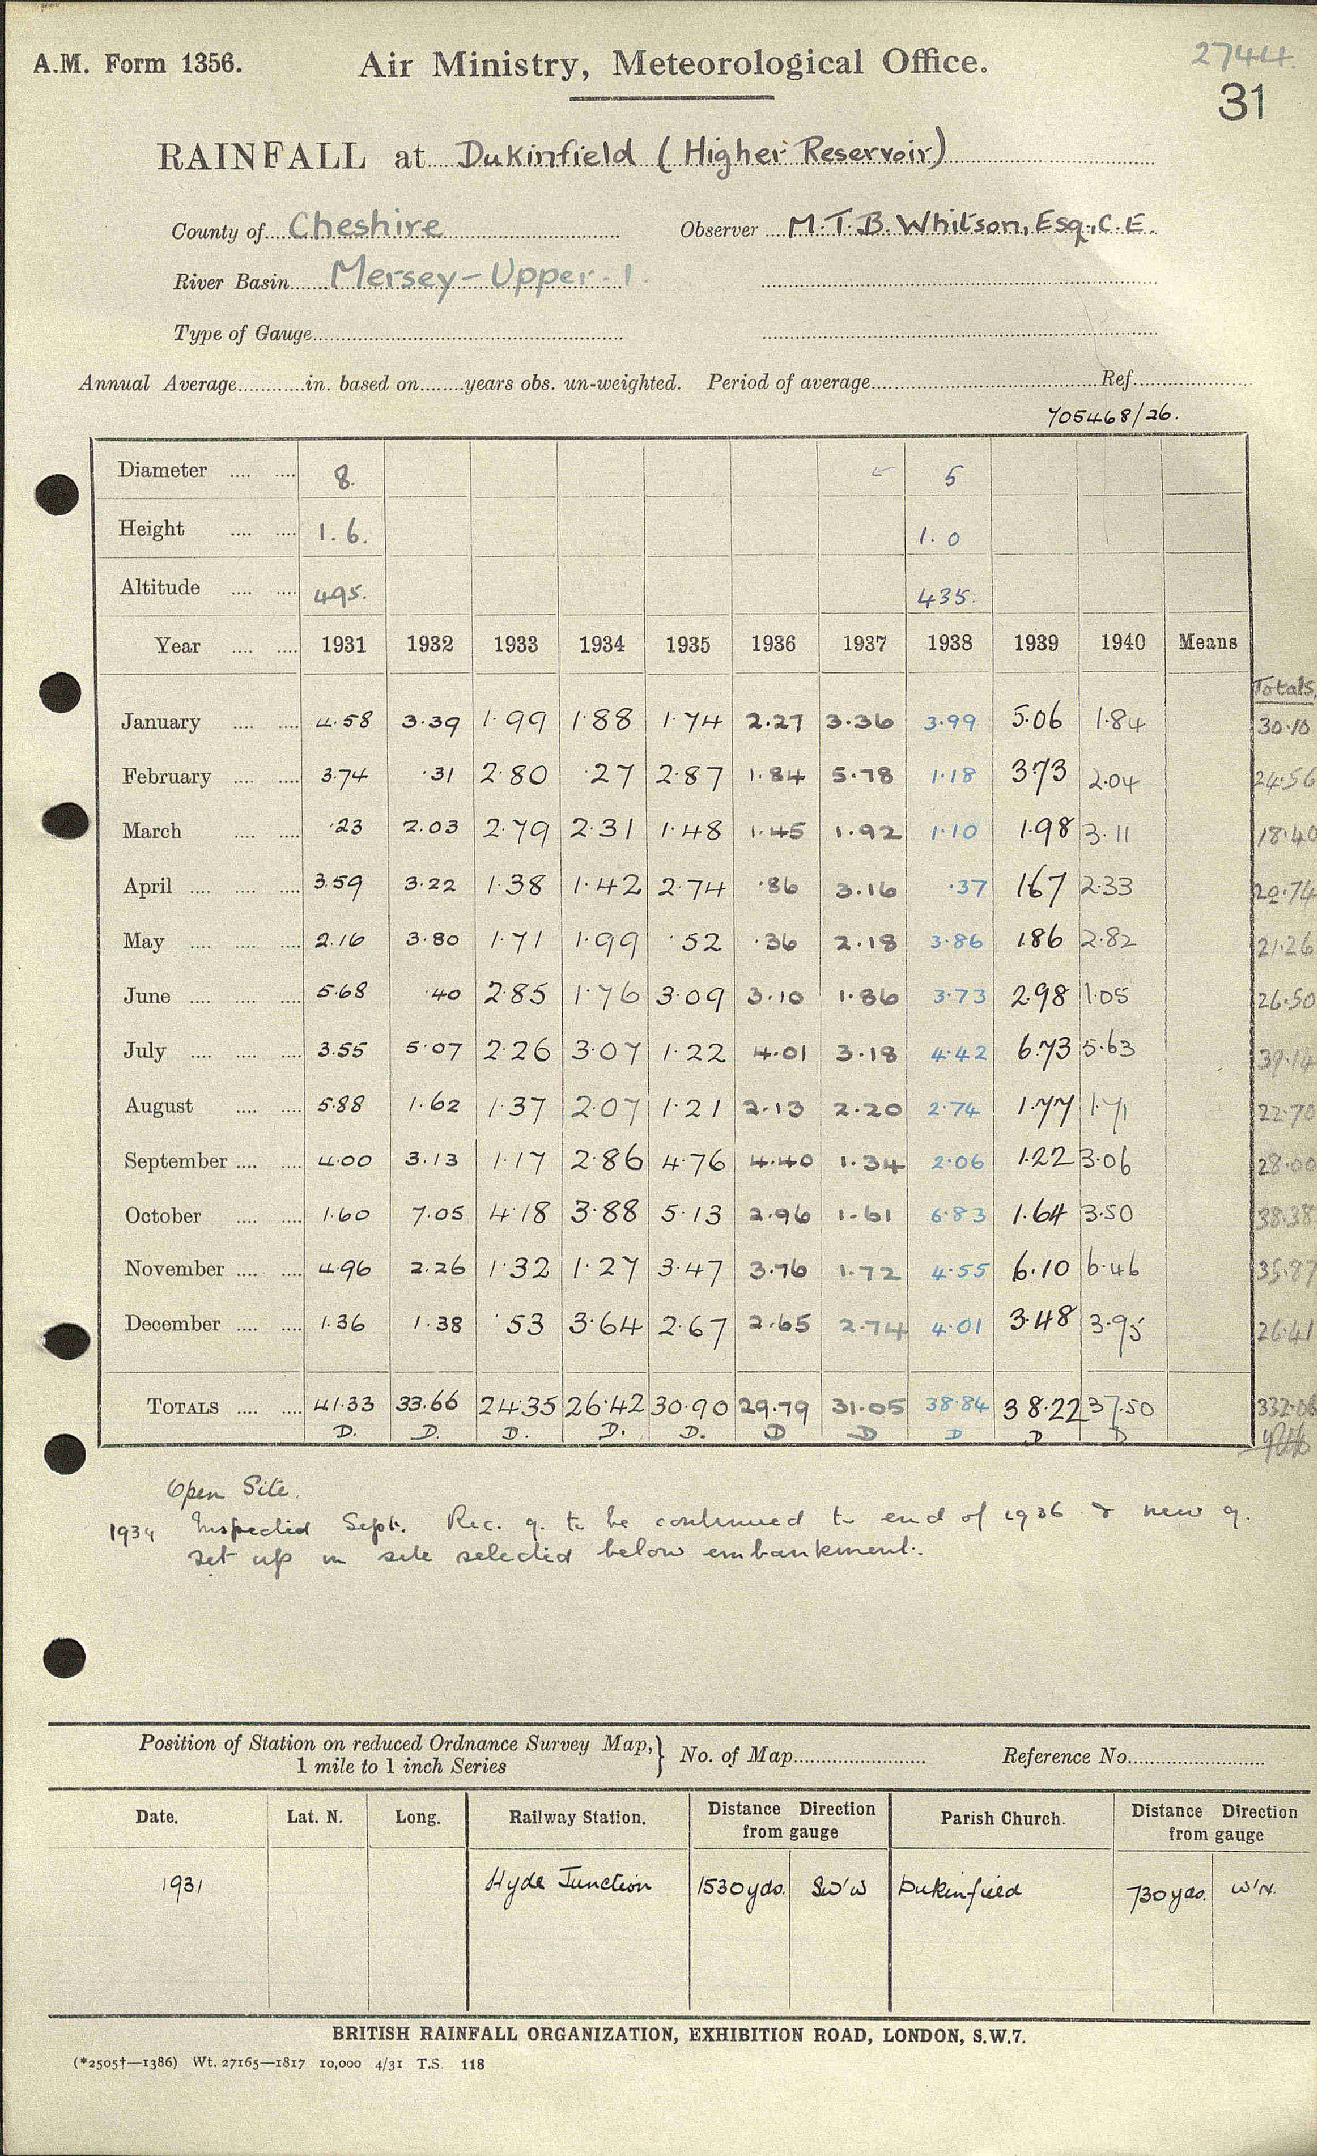 A.M. Form 1356.
Air Ministry, Meteorological Office.
2744.
31
RAINFALL at Dukinfield (Higher Reservoir)
County of Cheshire Observer M.T.B. Whitson, Esq., C.E.
River Basin Mersey-Upper-1.
Type of Gauge
Annual Average in. based on years obs. un-weighted. Period of average Ref.
705468/26.
Diameter 8. 5
Height 1.6. 1.0
Altitude 495. 435.
Year 1931 1932 1933 1934 1935 1936 1937 1938 1939 1940 Means
Totals
January 4.58 3.39 1.99 1.88 1.74 2.27 3.36 3.99 5.06 1.84 30.10
February 3.74 .31 2.80 .27 2.87 1.84 5.78 1.18 3.73 2.04 24.56
March .23 2.03 2.79 2.31 1.48 1.45 1.92 1.10 1.98 3.11 18.40
April 3.59 3.22 1.38 1.42 2.74 .86 3.16 .37 1.67 2.33 20.74
May 2.16 3.80 1.71 1.99 .52 .36 2.18 3.86 1.86 2.82 21.26
June 5.68 .40 2.85 1.76 3.09 3.10 1.86 3.73 2.98 1.05 26.50
July 3.55 5.07 2.26 3.07 1.22 4.01 3.18 4.42 6.73 5.63 39.14
August 5.88 1.62 1.37 2.07 1.21 2.13 2.20 2.74 1.77 1.71 22.70
September 4.00 3.13 1.17 2.86 4.76 4.40 1.34 2.06 1.22 3.06 28.00
October 1.60 7.05 4.18 3.88 5.13 2.96 1.61 6.83 1.64 3.50 38.38
November 4.96 2.26 1.32 1.27 3.47 3.76 1.72 4.55 6.10 6.46 35.87
December 1.36 1.38 .53 3.64 2.67 2.65 2.74 4.01 3.48 3.95 26.41
TOTALS 41.33 33.66 24.35 26.42 30.90 29.79 31.05 38.84 38.22 37.50 332.06
D. D. D. D. D. D D D D D
Open Site.
1934 Inspected Sept. Rec. g. to be continued to end of 1936 & new g.
set up in site selected below embankment.
Position of Station on reduced Ordnance Survey Map, } No. of Map Reference No.
1 mile to 1 inch Series
Date. Lat. N. Long. Railway Station. Distance Direction from gauge Parish Church. Distance Direction from gauge
1931 Hyde Junction 1530 yds. SW'W Dukinfield 730 yds. W'N.
BRITISH RAINFALL ORGANIZATION, EXHIBITION ROAD, LONDON, S.W.7.
(*2505†—1386) Wt. 27165—1817 10,000 4/31 T.S. 118